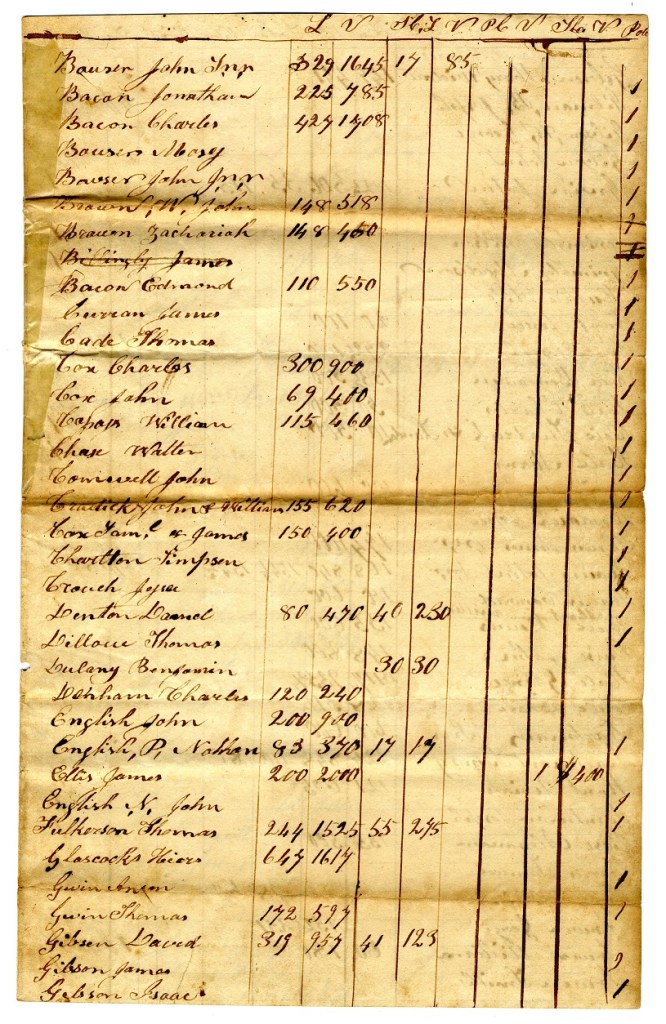 L V Sh.L V Pl V Sla V Pole
Bauser John Snr 329 1645 17 85
Bacon Jonathan 225 785 1
Bacon Charles 427 1708 1
Bausers Mosy 1
Bowser John Jnr 1
Brown S. W. John 148 518 1
Brawen Zachariah 148 460 1
Billingly James 1
Bacon Edmond 110 550 1
Curran James 1
Cade Thomas 1
Cox Charles 300 900 1
Cox John 69 400 1
William 115 460 1
Chase Walter 1
Comwell John 1
Cradick John & William 155 620 1
Cox Saml & James 150 400 1
Charlton Simpson 1
Crouch Jesse 1
Denton Daniel 80 470 40 230 1
Thomas 1
Dulany Benjamin 30 30
Denham Charles 120 240
English John 200 900
English, P, Nathan 83 370 17 17 1
Ellis James 200 2000 1 $400
English N. John 1
Fulkerson Thomas 244 1525 55 275 1
Glascocks Heirs 647 1617
Gwin Anson 1
Gwin Thomas 172 597 1
Gibson David 319 957 41 123
Gibson James
Gibson Isaac 1